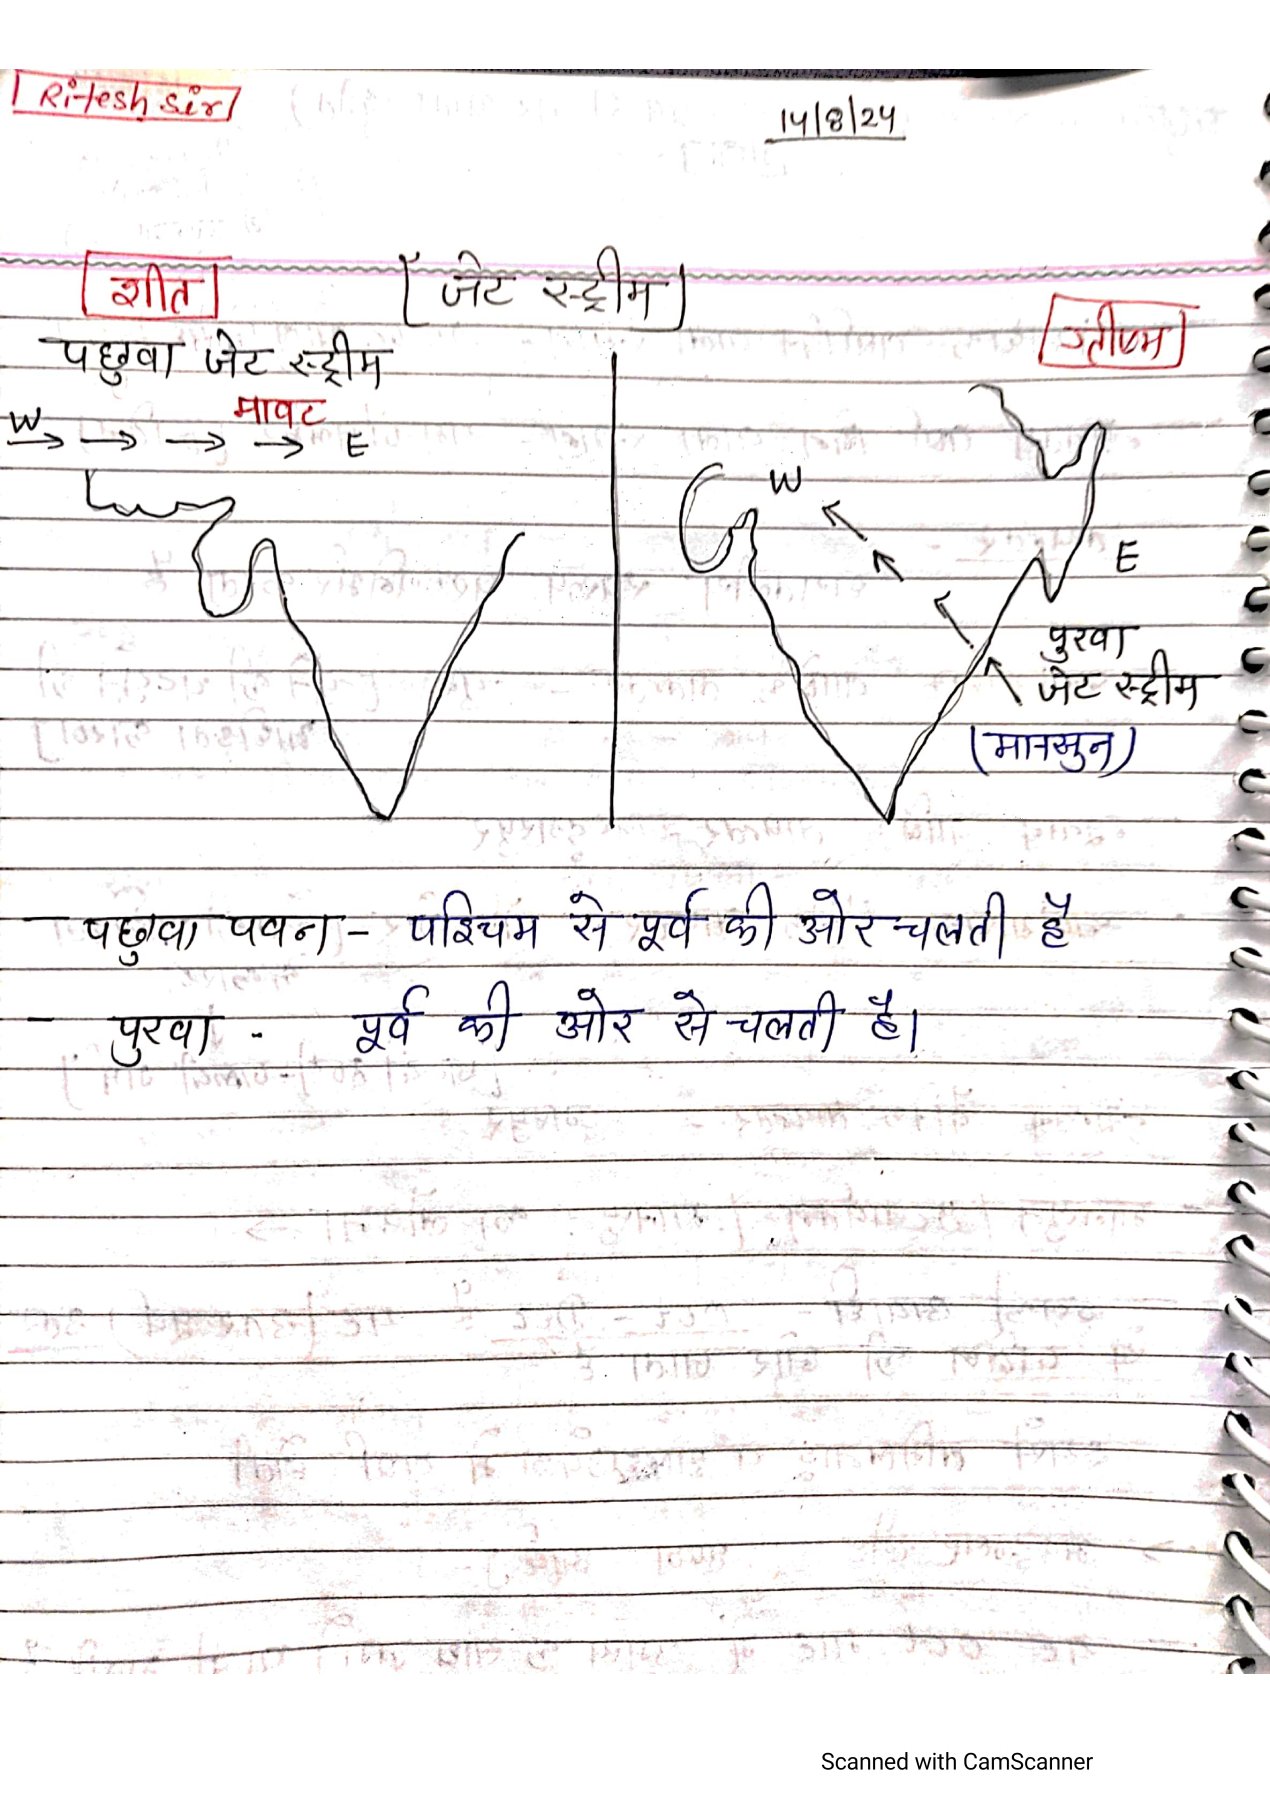 Ritesh sir
14/8/24
शीत
जेट स्ट्रीम
ग्रीष्म
पछुवा जेट स्ट्रीम
मावट
W E
W
E
पुरवा
जेट स्ट्रीम
(मानसुन)
- पछुवा पवन - पश्चिम से पूर्व की ओर चलती है
- पुरवा - पूर्व की ओर से चलती है।
Scanned with CamScanner